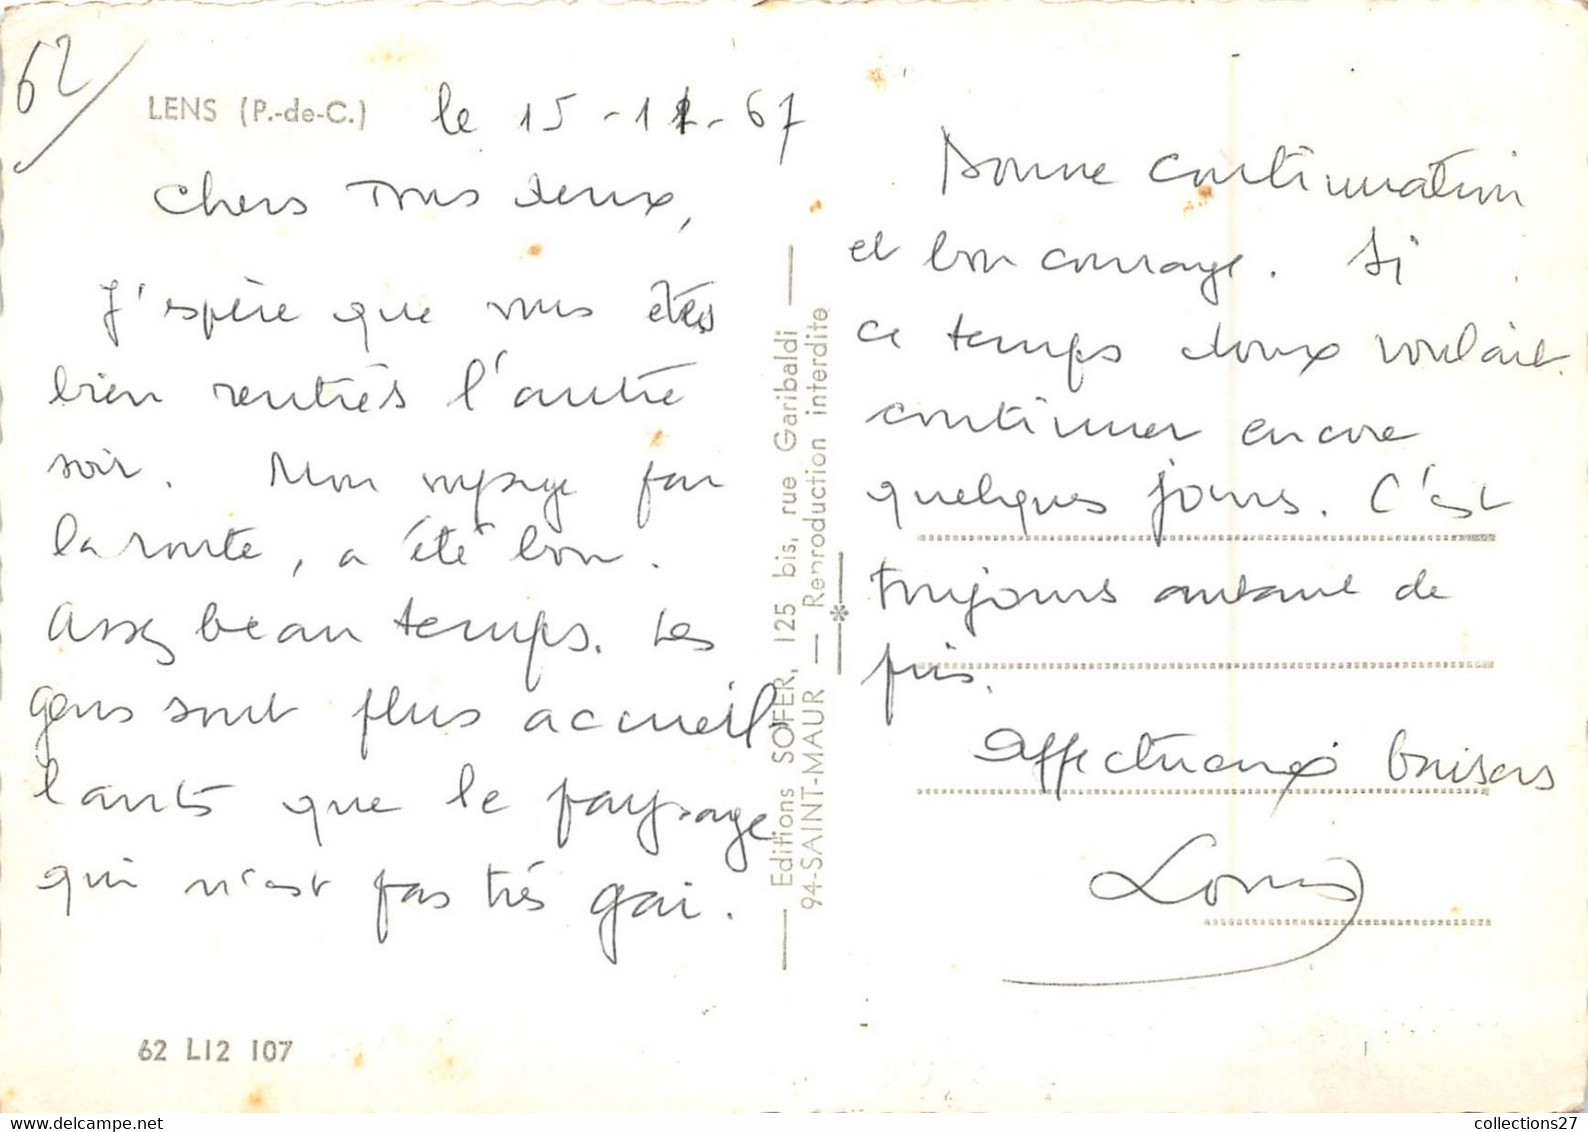 62
LENS (P.-de-C.)
le 15-11-67
Chers tous deux,
J'espère que vous êtes
bien rentrés l'autre
soir. Mon voyage par
la route, a été bon.
Assez beau temps. Les
gens sont plus accueil-
lants que le paysage
qui n'est pas très gai.
62 L12 107
Editions SOFER, 125 bis, rue Garibaldi
94-SAINT-MAUR — Reproduction interdite
Bonne continuation
et bon courage. Si
ce temps doux voulait
continuer encore
quelques jours. C'est
toujours autant de
pris.
Affectueux baisers
Louis
collections27